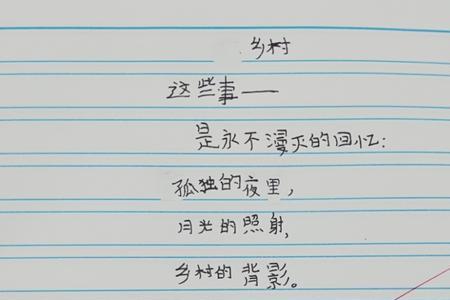 乡村
这些事——
是永不漫灭的回忆:
孤独的夜里,
月光的照射,
乡村的背影。